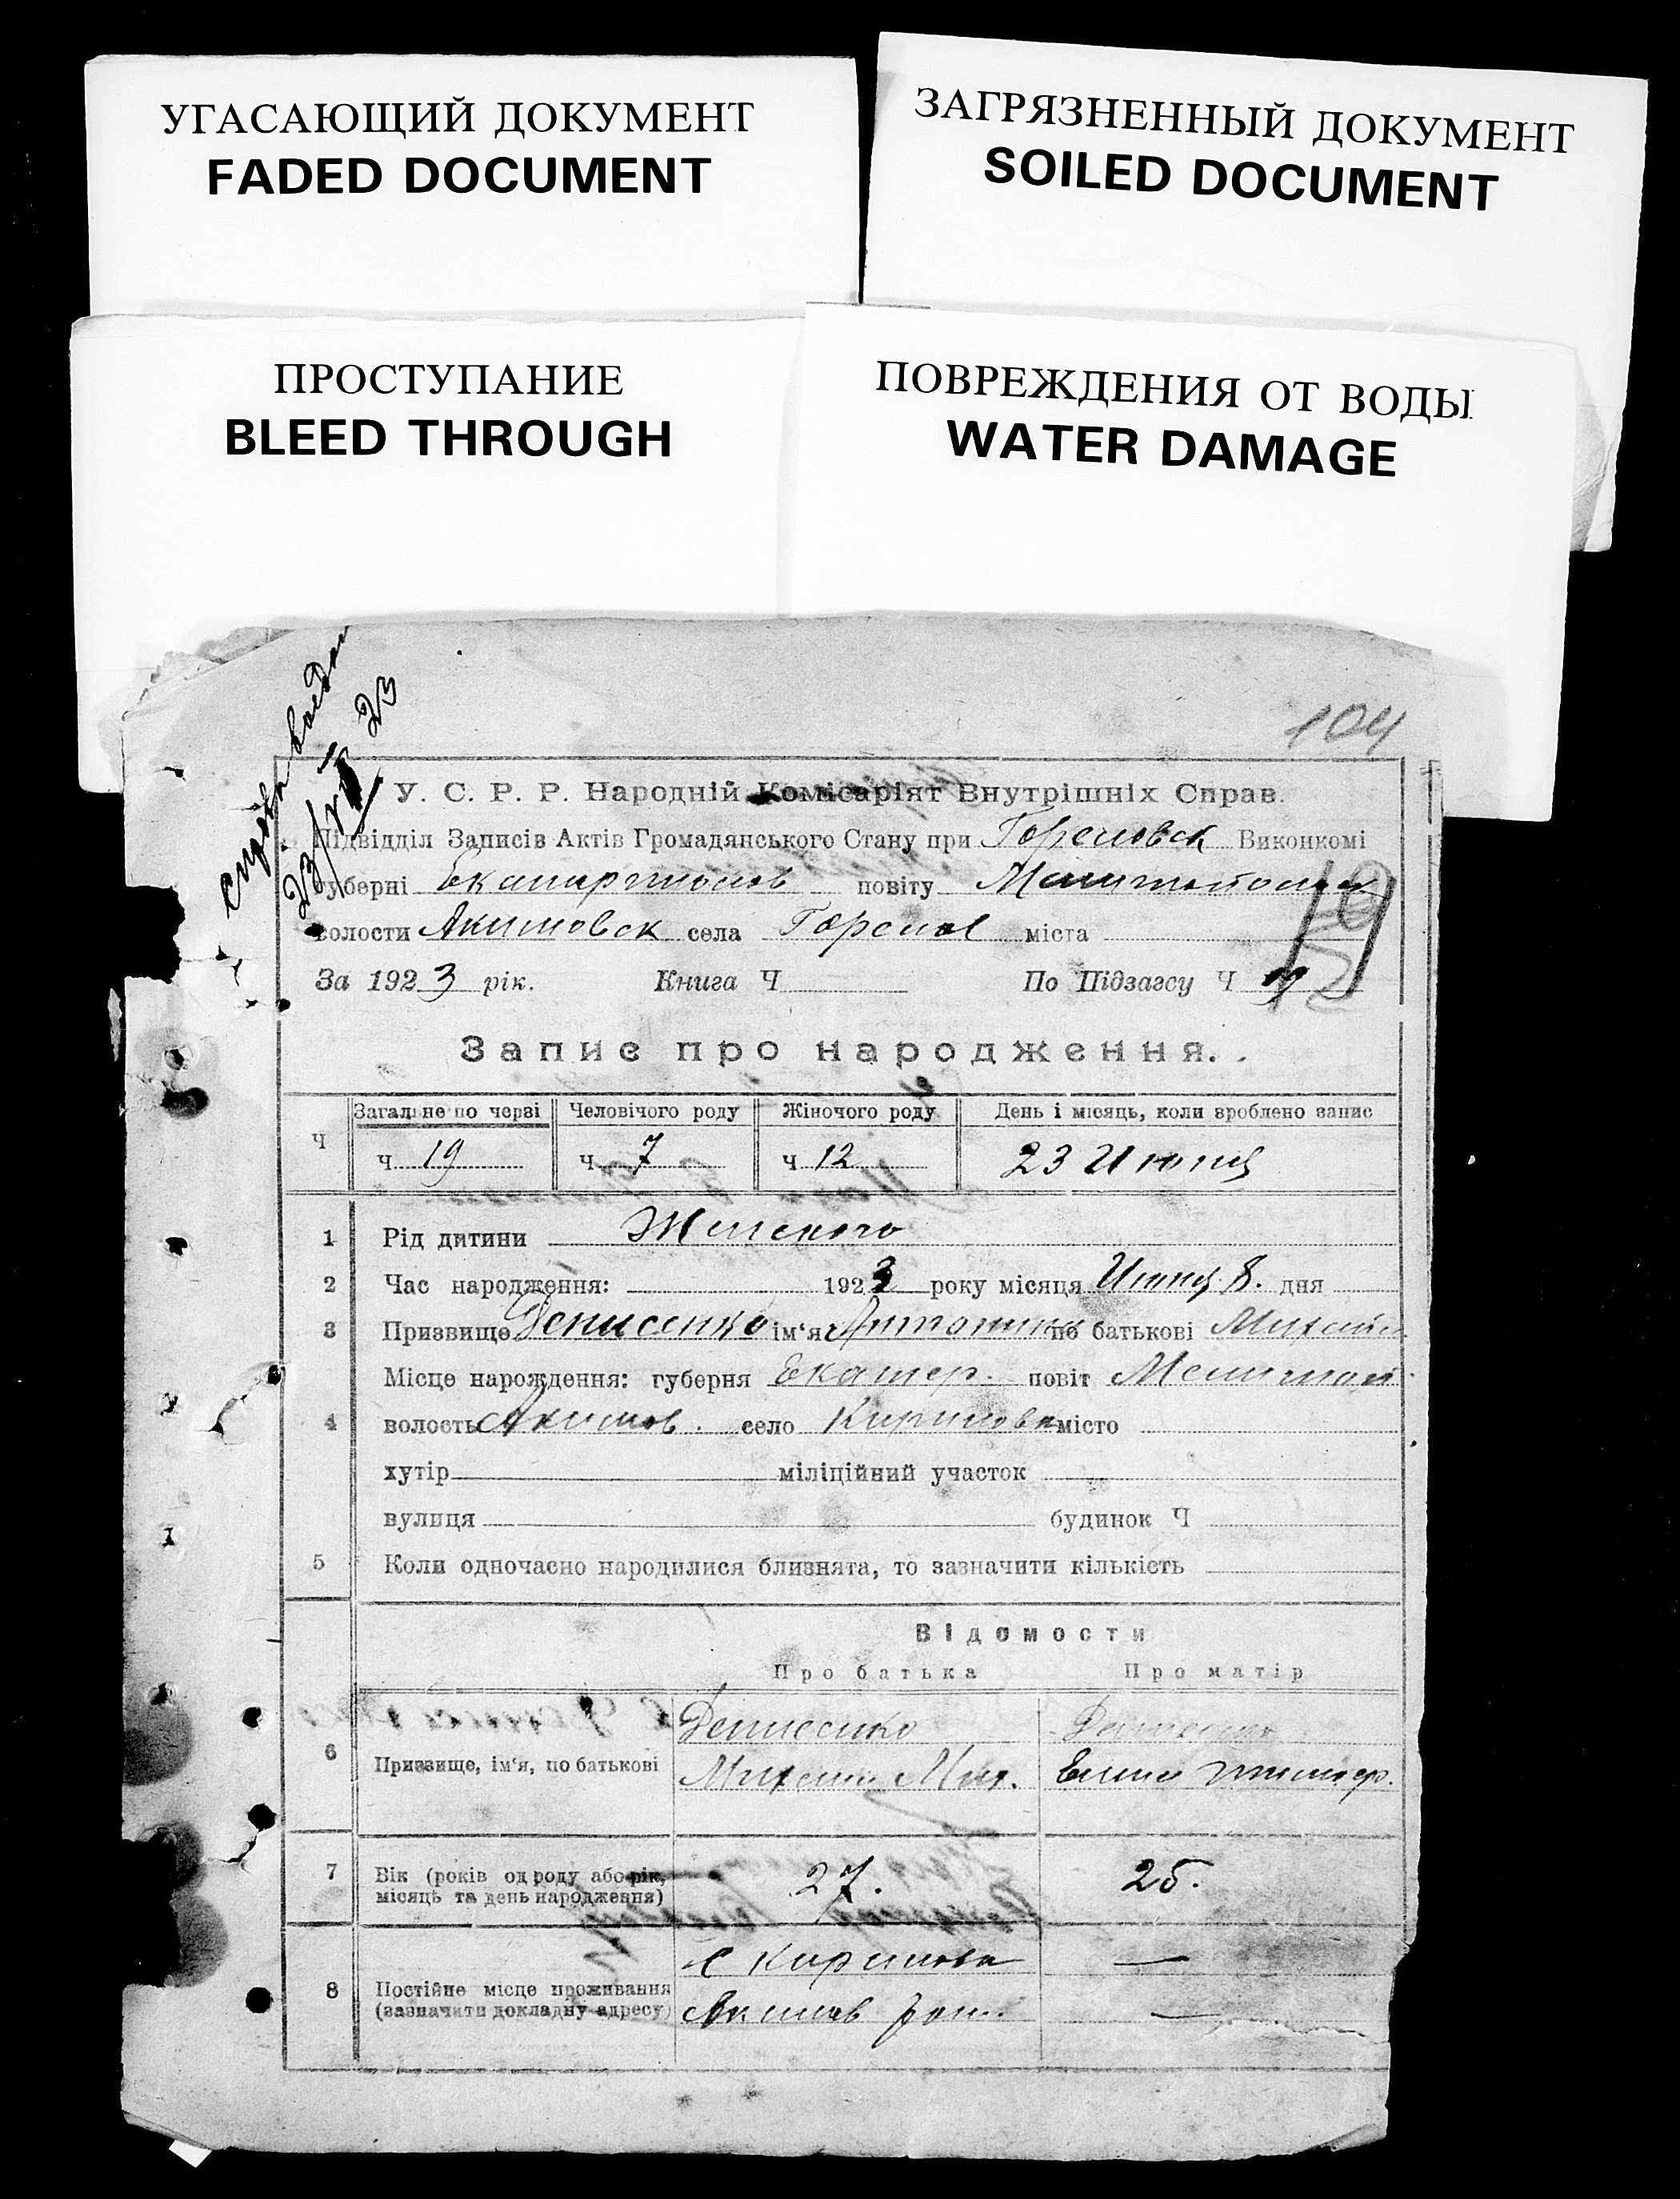 УГАСАЮЩИЙ ДОКУМЕНТ
FADED DOCUMENT
ЗАГРЯЗНЕННЫЙ ДОКУМЕНТ
SOILED DOCUMENT
ПРОСТУПАНИЕ
BLEED THROUGH
ПОВРЕЖДЕНИЯ ОТ ВОДЫ
WATER DAMAGE
104
У. С. Р. Р. Народній Комісаріят Внутрішніх Справ.
Підвідділ Записів Актів Громадянського Стану при Гореловск Виконкомі
губерні повіту
волости Акимовск села Горелое міста
За 1923 рік. Книга Ч По Підзагсу Ч 19
Запис про народження.
Загальне по черзі Человічого роду Жіночого роду День і місяць, коли зроблено запис
Ч ч 19 ч 7 ч 12 23 Июня
1 Рід дитини Женского
2 Час народження: 1923 року місяця Июня 8. дня
3 Призвище Денисенко ім'я Антонина по батькові
Місце нарождення: губерня Екатер. повіт
4 волость Акимов. село місто
хутір міліційний участок
вулиця будинок Ч
5 Коли одночасно народилися близнята, то зазначити кількість
Відомости
Про батька Про матір
Денисенко Денисенко
6 Призвище, ім'я, по батькові Михаил Мих.
7 Вік (років од роду або рік, місяць та день народження) 27. 25.
8 Постійне місце проживання
(зазначити докладну адресу)